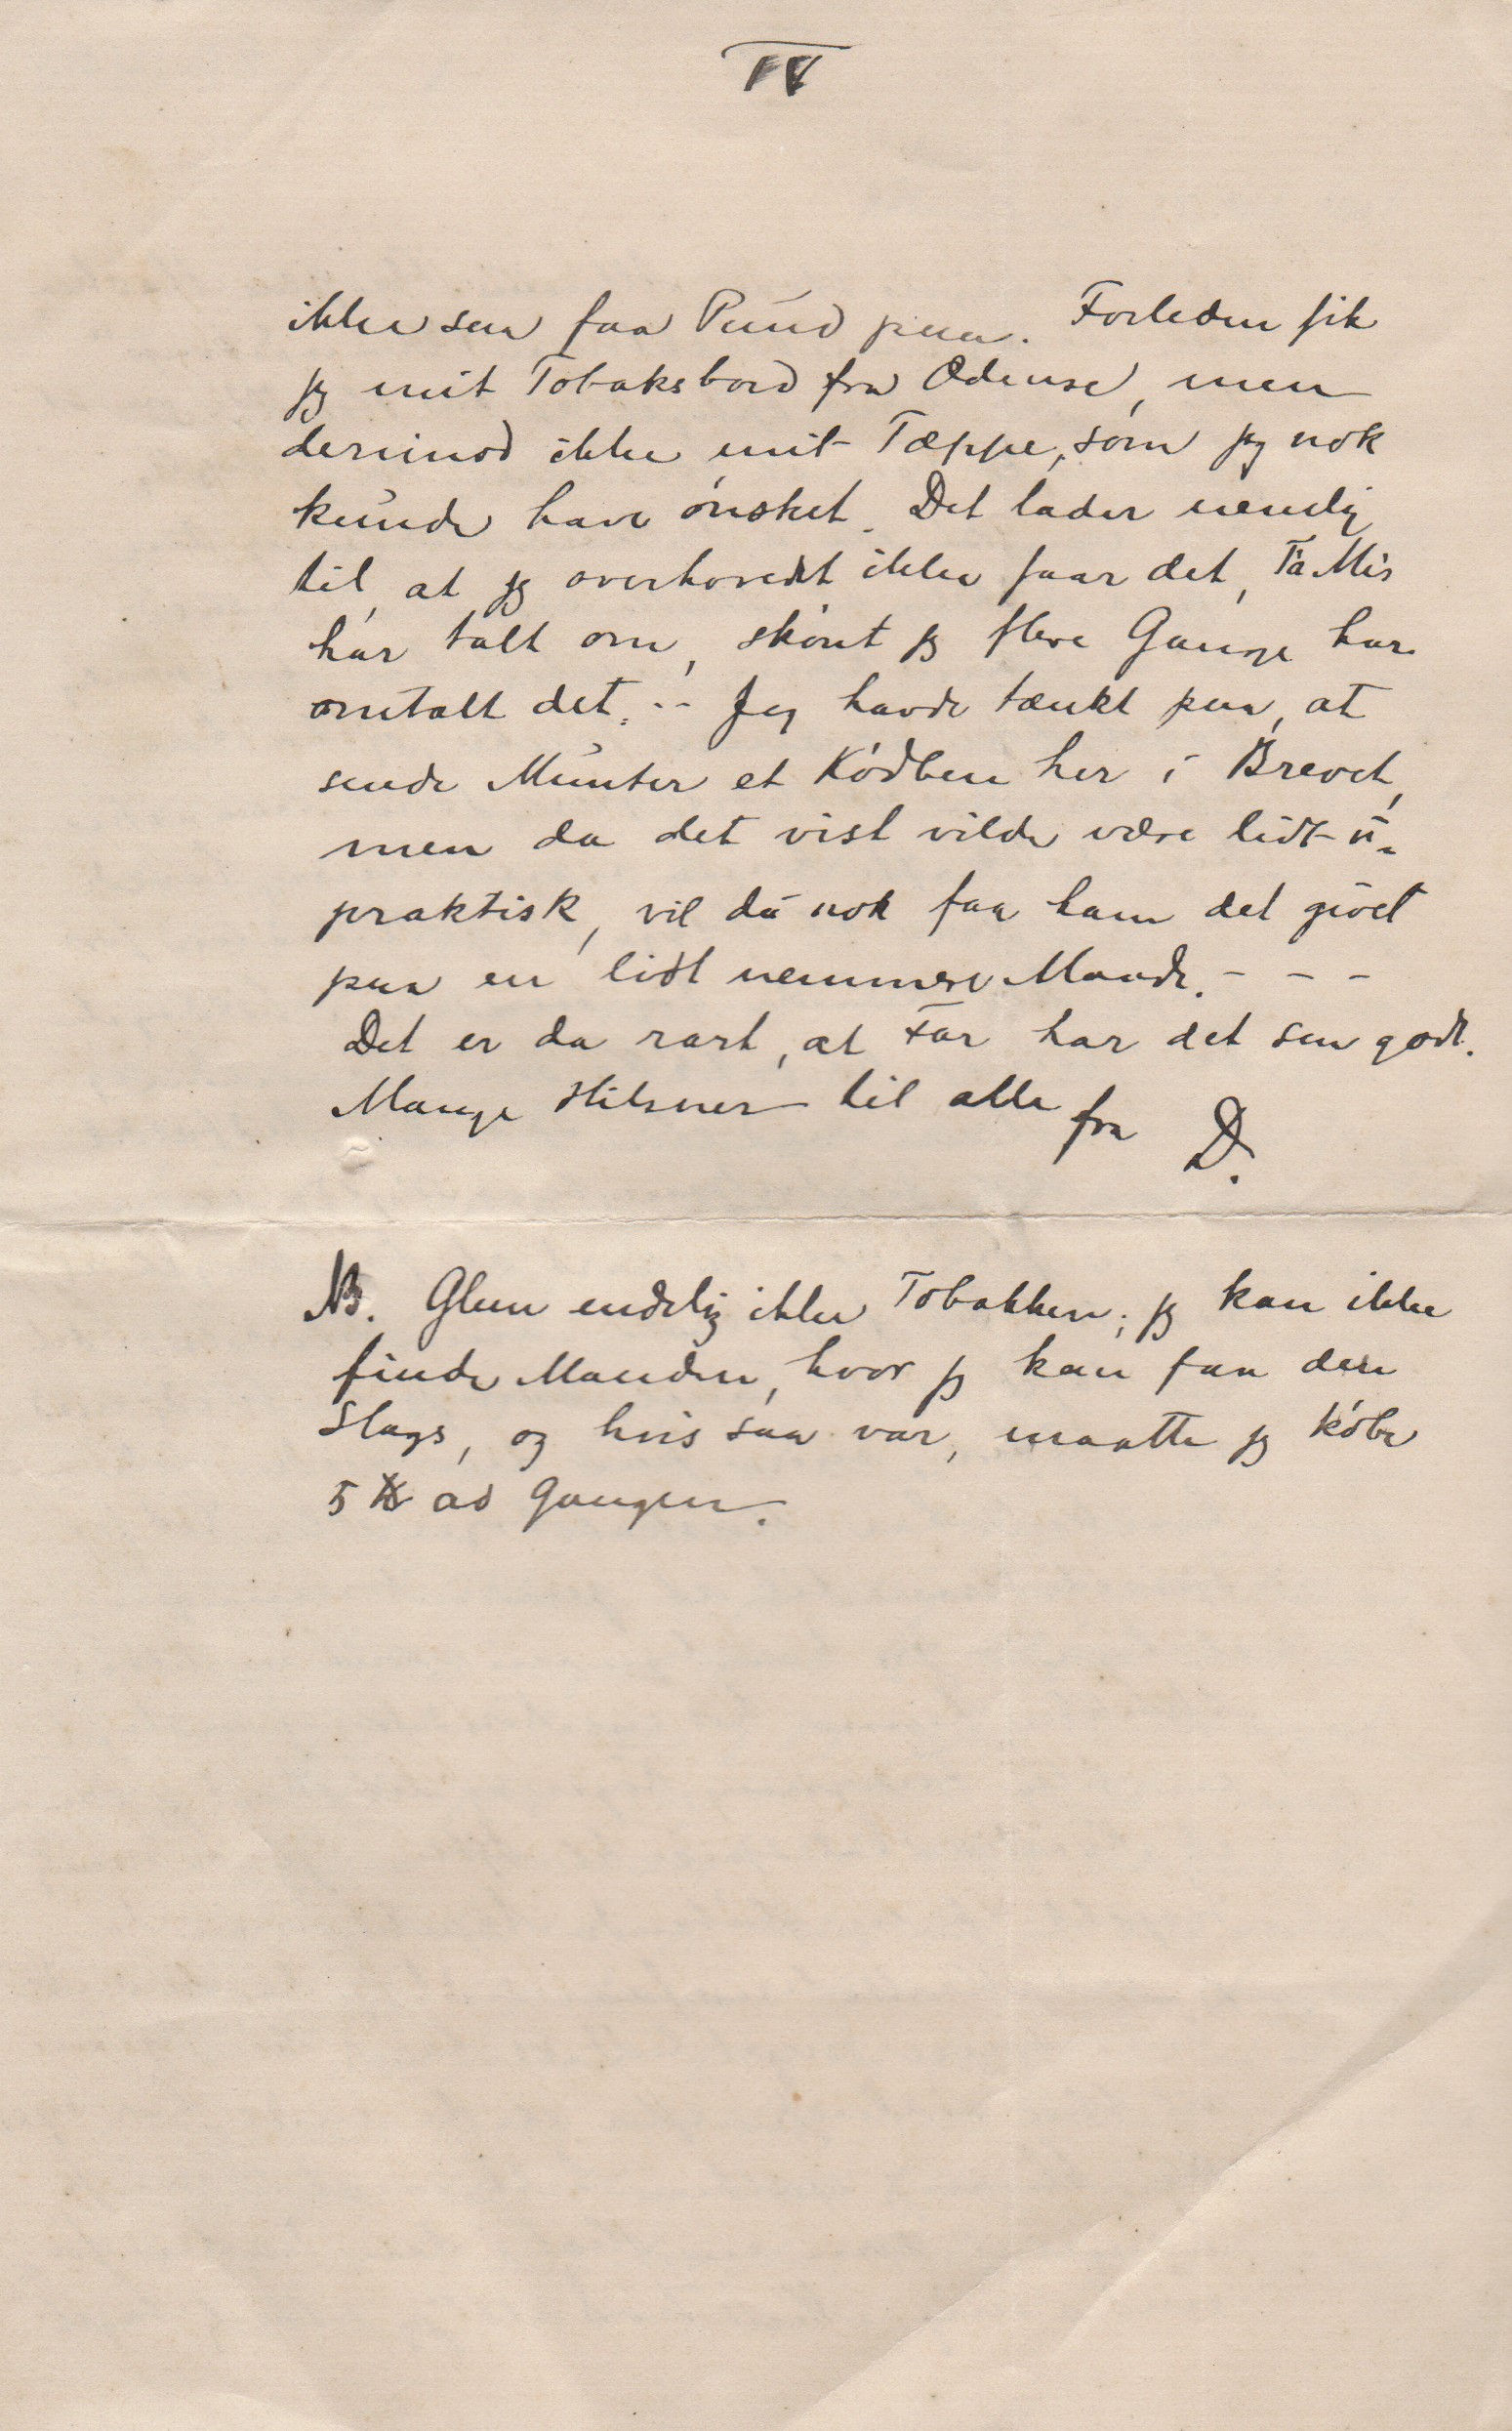 IV
ikke saa faa Pund paa. Forleden fik
jeg mit Tobaksbord fra Odense, men
derimod ikke mit Tæppe, som jeg nok
kunde have ønsket. Det lader nemlig
til, at jeg overhovedet ikke faar det, Ta Mis
har talt om, skønt jeg flere Gange har
omtalt det. -- Jeg havde tænkt paa, at
sende Munter et Kødben her i Brevet,
men da det vist vilde være lidt u-
praktisk, vil du nok faa ham det givet
paa en lidt nemmere Maade. - - -
Det er da rart, at Far har det saa godt.
Mange Hilsner til alle fra D.
NB. Glem endelig ikke Tobakken; jeg kan ikke
finde Manden, hvor jeg kan faa den
Slags, og hvis saa var, maatte jeg købe
5 ℔ ad Gangen.